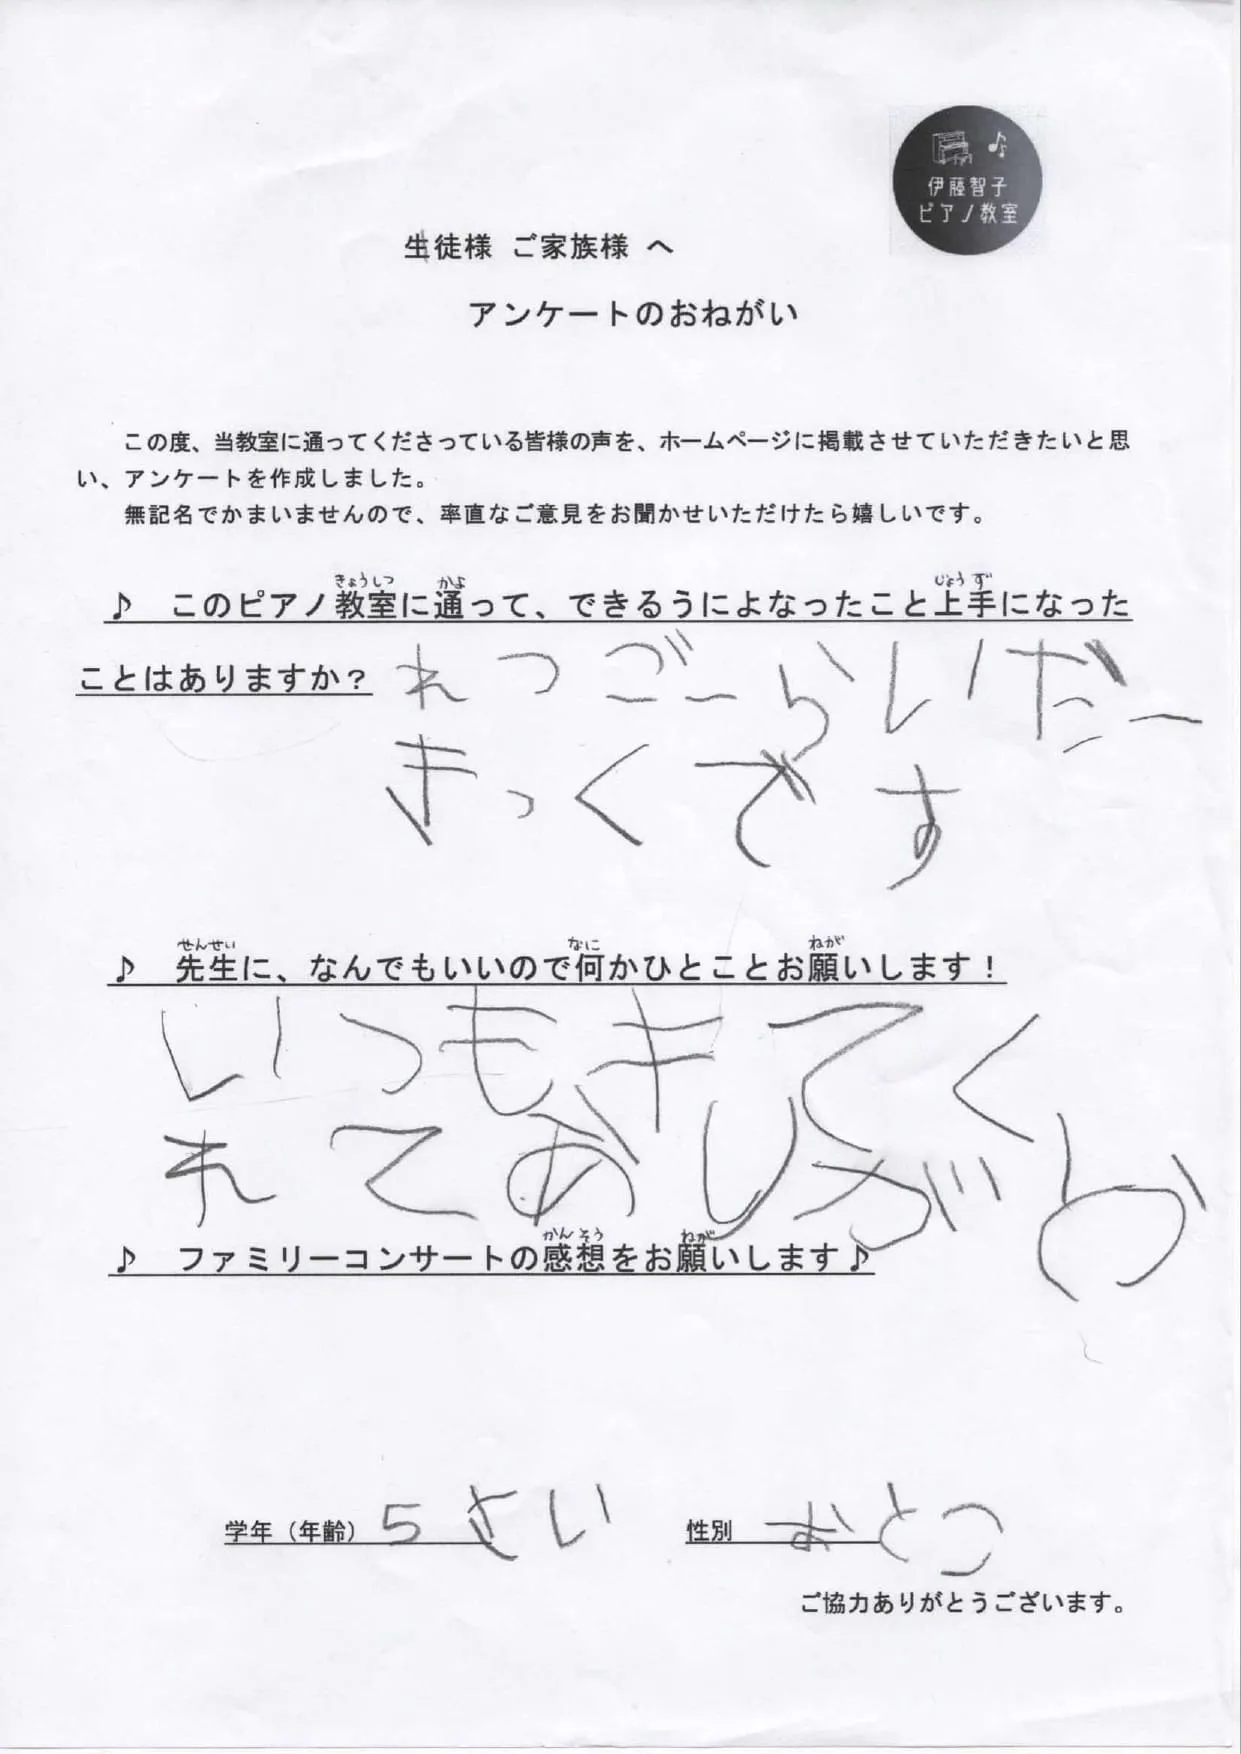 伊藤智子
ピアノ教室
生徒様 ご家族様 へ
アンケートのおねがい
この度、当教室に通ってくださっている皆様の声を、ホームページに掲載させていただきたいと思
い、アンケートを作成しました。
無記名でかまいませんので、率直なご意見をお聞かせいただけたら嬉しいです。
きょうしつ かよ じょうず
♪ このピアノ教室に通って、できるうによなったこと上手になった
ことはありますか?
れつごーらいだー
きっくです
せんせい なに ねが
♪ 先生に、なんでもいいので何かひとことお願いします!
いつもきてく
れてありがとう
かんそう ねが
♪ ファミリーコンサートの感想をお願いします♪
学年(年齢) 5さい 性別 おとこ
ご協力ありがとうございます。